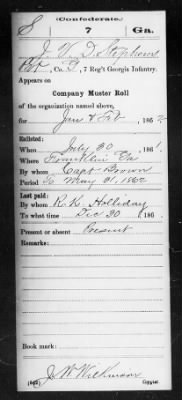 (Confederate.)
S 7 Ga.
J. W. D. Stephens
Pvt, Co. B, 7 Reg't Georgia Infantry.
Appears on
Company Muster Roll
of the organization named above,
for Jan & Feb, 1862
Enlisted:
When July 30, 1861.
Where Franklin Ga
By whom Capt Brown
Period To May 31, 1862
Last paid:
By whom R. K. Holliday
To what time Dec 30, 186 .
Present or absent Present
Remarks:
Book mark:
J. W. Wickmann
(642) Copyist.